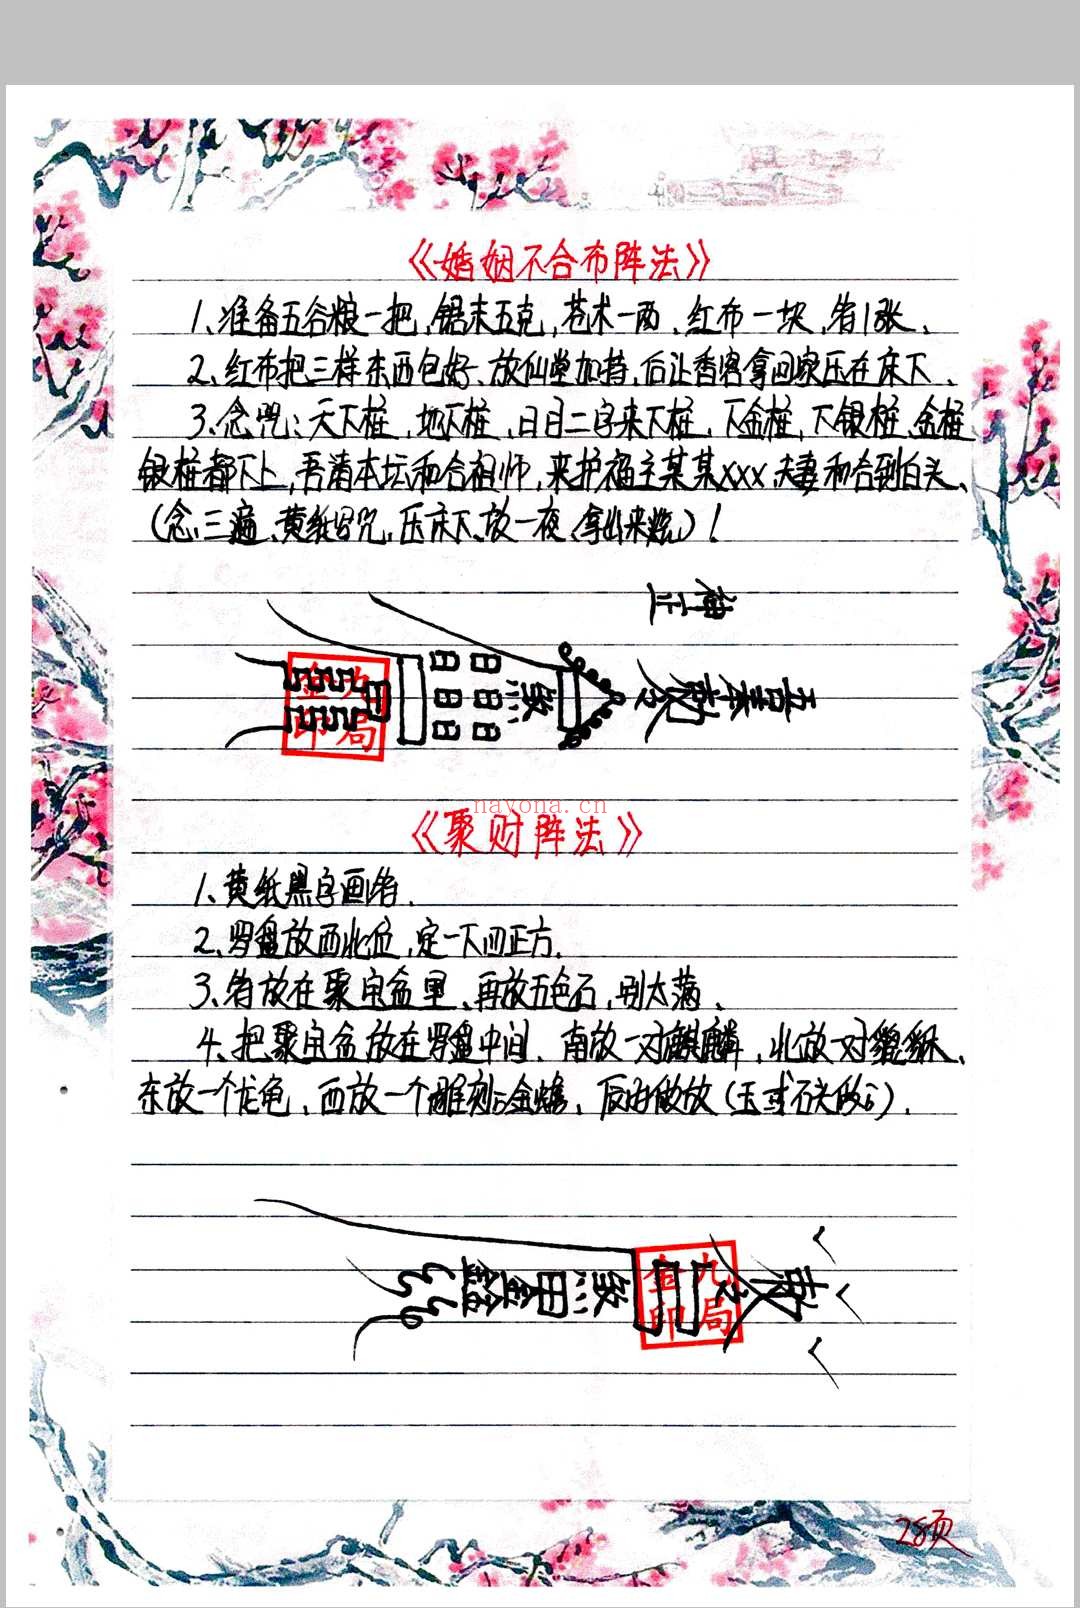 《婚姻不合布阵法》
1、准备五谷粮一把,锯末五克,苍术一两、红布一块,符1张、
2、红布把三样东西包好、放仙堂加持,后让香客拿回家压在床下、
3、念咒:天下桩,地下桩,日月二字来下桩,下金桩,下银桩、金桩
银桩都下上,吾请本坛和合祖师,来护福主某某xxx夫妻和合到白头、
(念三遍、黄纸写咒,压床下、放一夜、拿出来烧)!
神正
吾奉敕令
煞
九局
金印
nayona.cn
《聚财阵法》
1、黄纸黑字画符.
2、罗盘放西北位,定一下四正方.
3、符放在聚宝盆里、再放五色石,别太满、
4、把聚宝盆放在罗盘中间、南放一对麒麟,北放一对貔貅、
东放一个龙龟、西放一个雕刻金蟾、放(玉或石头做).
敕令
九局
金印
28页